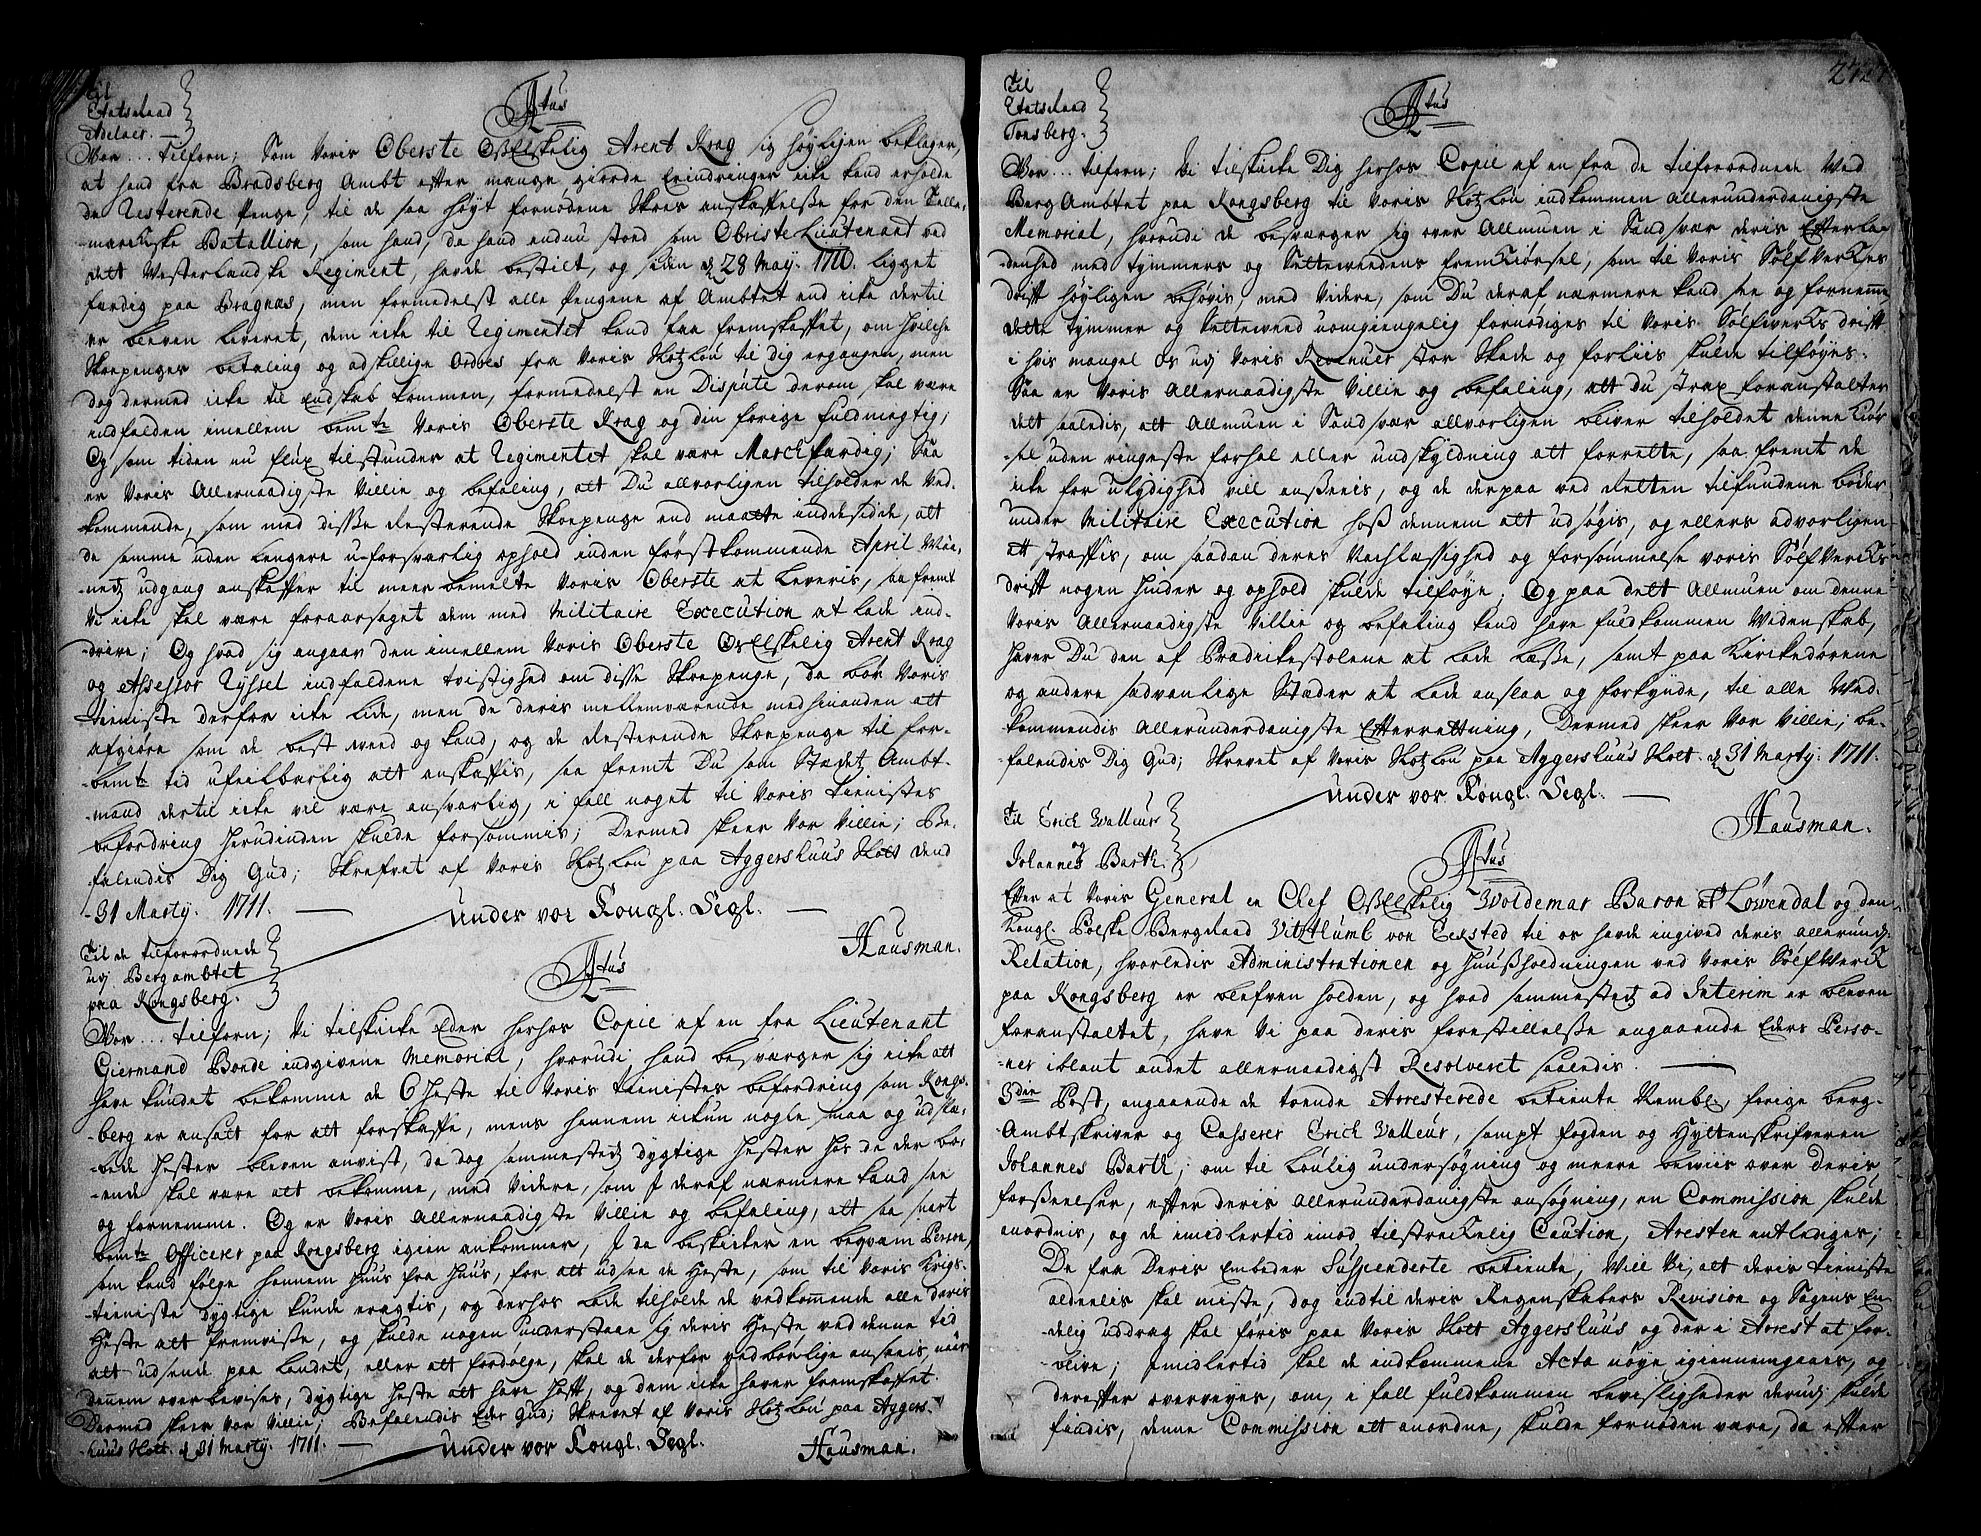 Til
Etatsraad
Adelaer. —
Atus
Vor... tilforn; Som Voris Oberste OßElskelig Arent Krag sig höyligen beklager,
at hand fra Bradsberg Ambt efter mange giorde Erindringer icke kand erholde
de Resterende Penge, til de saa höyt fornödene Skoes anskaffelße for den Telle-
-marckske Batallion, som hand, da hand endnu stoed som Obriste Lieutenant ved
dett Vesterlandske Regiment, hafde bestilt, og siden d 28 May. 1710. ligget
færdig paa Bragnæs, men formedelst alle Pengene af Ambtet end icke dertil
er bleven leveret, dem icke til Regimentet kand faa fremskaffet, om hvilche
Skoepenges betaling og adskillige Ordres fra Voris SlotzLou til dig ergangen, men
dog dermed icke til Endskab kommen, formedelst en Dispute derom skal være
indfalden imellem bemte Voris Oberste Krag og din forige fuldmegtig;
Og som tiden nu flux tilstunder at Regimentet skal være Marchfærdig; Saa
er Voris Allernaadigste Villie og befaling, att Du alvorligen tilholder de Ved-
kommende, som med diße Resterende Skoepenge end maatte indesidde, att
de samme uden længere u-forsvarlig ophold inden förstkommende April Maa-
-netz udgang anskaffer til meer bemelte Voris Oberste at leveris, saa fremt
Vi icke skal være foraarsaget dem med Militaire Execution at lade ind-
-drive; Og hvad sig angaar den imellem Voris Oberste OsElskelig Arent Krag
og Assessor Ryssel indfaldene tvistighed om diße Skoepenge, da bör Voris
tieniste derfor icke lide, men de deris mellemværende med hinanden att
afgiöre som de best veed og kand, og de Resterende Skoepenge til for-
-bemte tid ufeilbarlig att anskaffis, saa fremt Du som Stædet Ambt-
-mand dertil icke vil være ansvarlig, i fall noget til Voris tienistes
befordring herudinden skulde forsömmis; Dermed skeer Vor Villie; Be-
falendis Dig Gud; Skrefvet af Voris SlotzLou paa Aggershuus Slott dend
-31 Marty. 1711. — Under vor Kongl. Segl. —
Hausman.
Til de tilforordnede
udj Bergambtet
paa Kongsberg.
Atus
Vor... tilforn; Vi tilskicke Eder herhos Copie af en fra Lieutenant
Giermand Bonde indgivene Memorial, hvorudi hand besværger sig icke att
have kundet bekomme de 6 Heste til Voris tienistes befordring som Kongs-
-berg er ansatt for att forskaffe, mens hannem ickun nogle smaa og udslæ-
-bede Hester bleven anvist, da dog sammestedz dygtige Hester hos de der bo-
-ende skal være att bekomme, med videre, som I deraf nærmere kand see
og fornemme. Og er Voris Allernaadigste Villie og befaling, att saa snart
bemte Officerer paa Kongsberg igien ankommer, I da beskicker en beqvam Person,
som kand fölge hannem Huus fra Huus, for att udsee de Heste, som til Voris Krigs-
-tieniste dygtige kunde eragtis, og derhos lade tilholde de vedkommende alle deris
Heste att fremviße, og skulde nogen understaae sig deris Heste ved denne tid
att udsende paa landet, eller att fordölge, skal de derfor vedbörlige ansees naar
dennem overbevises, dygtige Heste att have hafft, og dem icke haver fremskaffet.
Dermed skeer Vor Villie; Befalendis Eder Gud; Skrevet af Voris SlotzLou paa Aggers-
huus Slott. d 31 Marty. 1711. — Under vor Kongl. Segl. Hausman.
2727
Til
Etatsraad
Tonsberg.
Atus
Vor... tilforn; Vi tilskicke Dig herhos Copie af en fra de tilforordnede Ved
BergAmbtet paa Kongsberg til Voris SlotzLou indkommen allerunderdanigste
Memorial, hvorudi de besværger sig over Allmuen i Sandsvær deris Efterla-
-denhed med tymmers og Setteveedens fremkiörsel, som til Voris SölfVerckes
drift höyligen behövis, med videre, som Du deraf nærmere kand see og fornemme
dette tymmer og Setteveed uomgiengelig fornödiges til Voris Sölfvercks drift
i hvis mangel Os udj Voris Revenuer stor Skade og forliis skulde tilföyes.
Saa er Voris Allernaadigste Villie og befaling, att Du strax foranstalter
det saaledis, att Allmuen i Sandsvær allvorligen bliver tilholdet denne kiör-
-sel uden ringeste forhal eller undskyldning att forrette, saa fremt de
icke for ulydighed vill anßeeis, og de derpaa ved Retten tilfundene böder
under Militaire Execution hoß dennem att udsögis, og ellers advorligen
att straffis, om saadan deres Nachlæssighed og forsömmelse Voris Sölfvercks
drift nogen hinder og ophold skulde tilföye; Og paa dett Allmuen om denne
Voris Allernaadigste Villie og befaling kand have fuldkommen Videnskab,
haver Du den af Prædickestolene at lade læße, samt paa Kirckedörene
og andre sædvanlige Stæder at lade anslaa og forkynde, til alle Ved-
kommendis Allerunderdanigste Efterrettning, Dermed skeer Vor Villie; be-
falendis Dig Gud; Skrevet af Voris SlotzLou paa Aggershuus Slott. d 31 Marty. 1711.
Under vor Kongl. Segl. —
Hausman.
Til Erich Walleur
og
Johannes Barth.
Atus
Efter at Voris General en Chef OsElskelig Woldemar Baron af Löwendal og den
Kongl. Polske Bergraad Vitzthumb von Ecksted til os hafde ingived deris allerund:
Relation, hvorledis Administrationen og Huußholdningen ved Voris SölfVerck
paa Kongsberg er blefven holden, og hvad sammestedz ad Interim er bleven
foranstaltet, have Vi paa deris forestillelße angaaende Eders Perso-
-ner iblant andet allernaadigst Resolveret saaledis. —
3die Post, angaaende de tvende Arresterede betiente Nembl. forige Berg-
-Ambtskriver og Casserer Erich Walleur, sampt fogden og Hyttenskrifveren
Johannes Barth; om til Loulig undersögning og meere beviis over deris
forßeelser, efter deris allerunderdanigste ansögning, en Commission skulde
anordnis, og de imedlertid imod tilstreckelig Caution, Aresten entlediges;
De fra Deris Embeder Suspenderte betiente, Will Vi, att deris tieniste
aldeelis skal miste, dog indtil deris Regenskabers Revision og Sagens En-
-delig uddrag skal föris paa Voris Slott Aggershuus og der i Arrest at for-
-blive; Imidlertid skal de indkommene Acta nöye igiennemgaaes, og
derefter overveyes, om, i fall fuldkommen bevisligheder derudj skulde
findis, denne Commission att anordne, skulde fornöden være, da efter